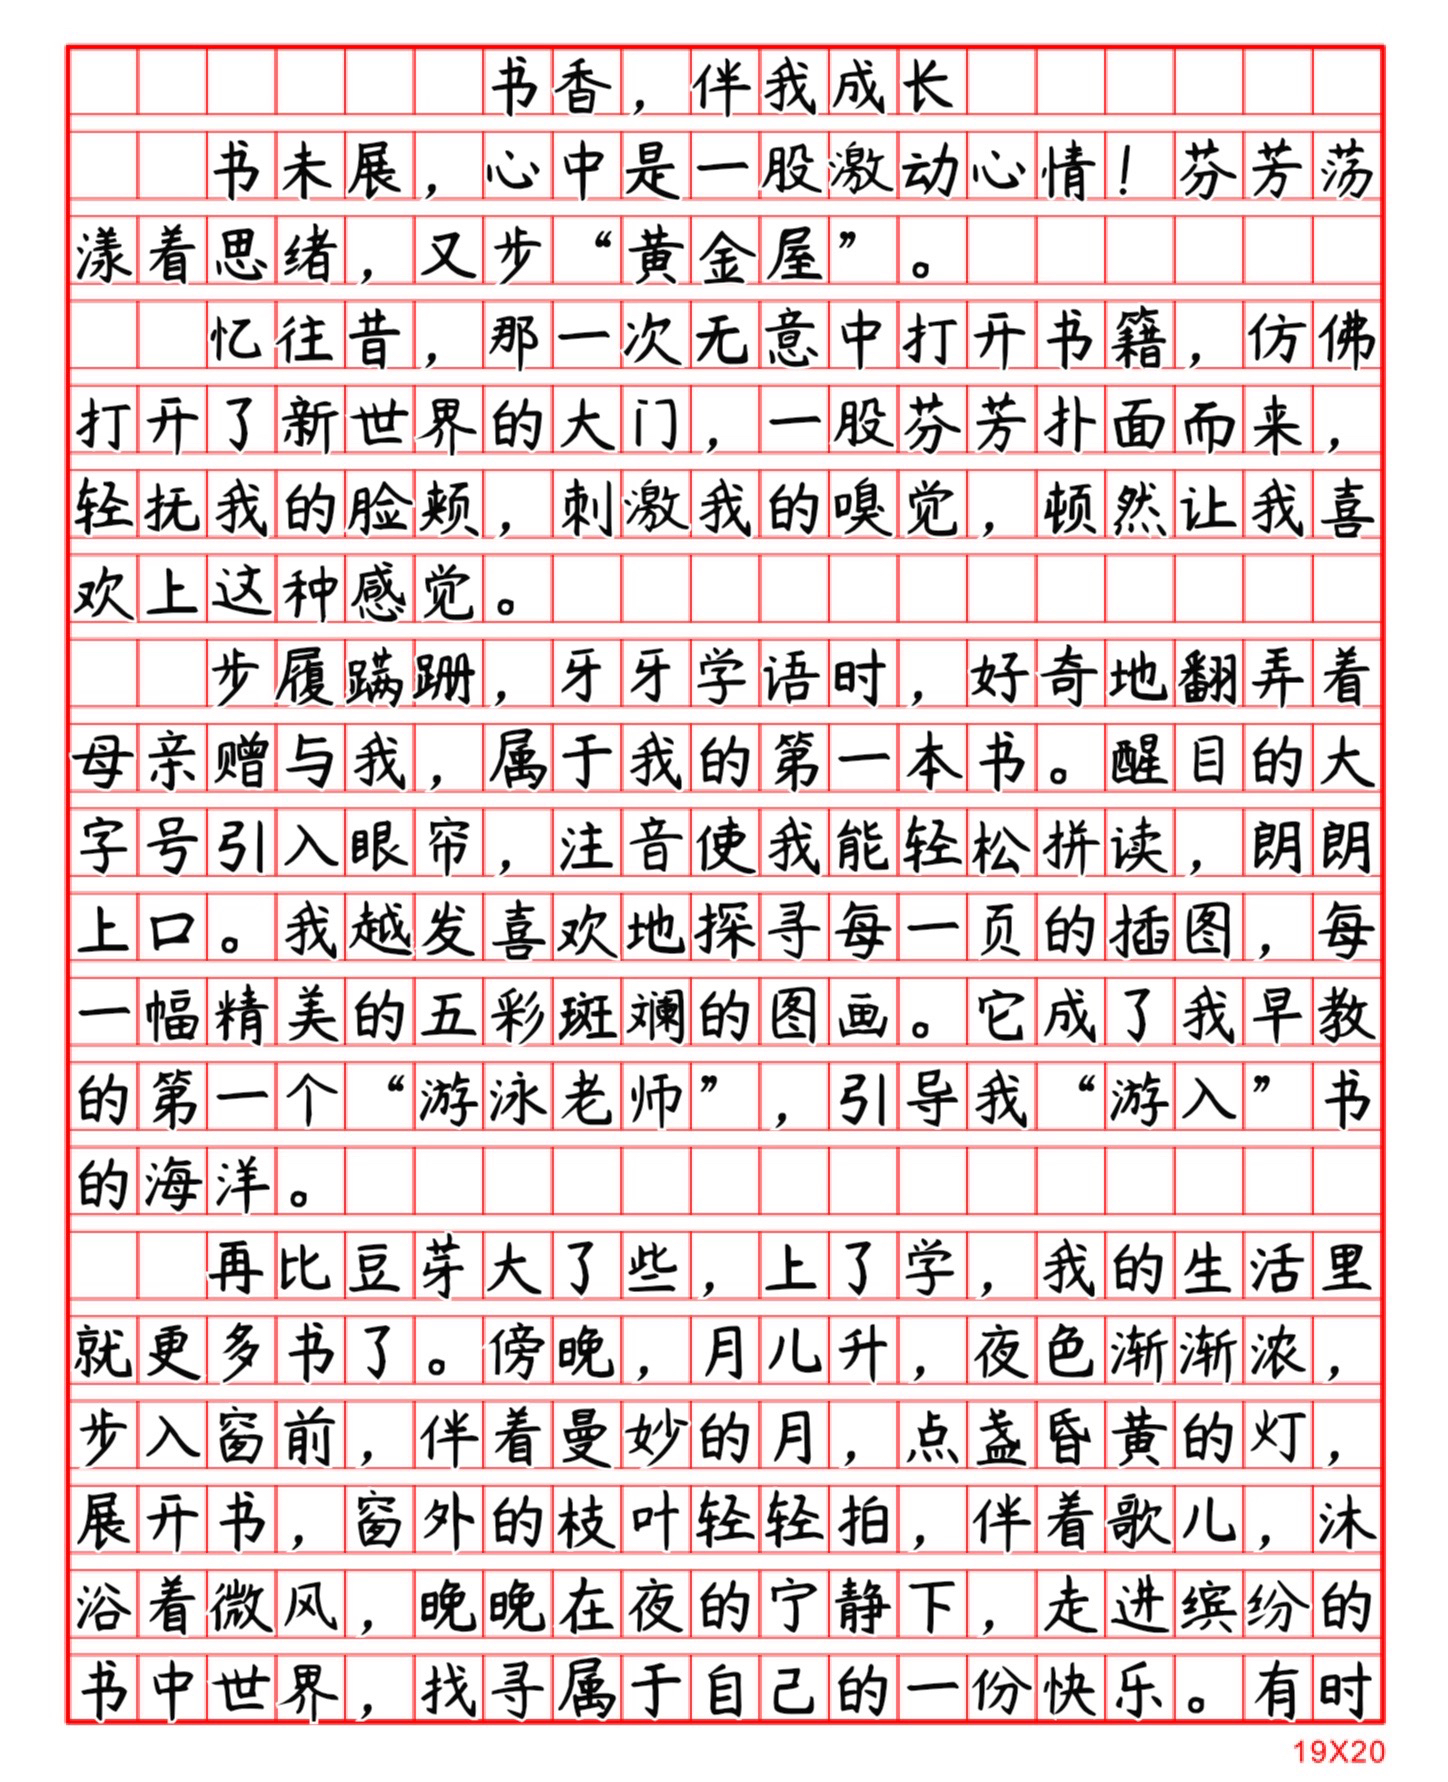 书香，伴我成长
书未展，心中是一股激动心情！芬芳荡
漾着思绪，又步“黄金屋”。
忆往昔，那一次无意中打开书籍，仿佛
打开了新世界的大门，一股芬芳扑面而来，
轻抚我的脸颊，刺激我的嗅觉，顿然让我喜
欢上这种感觉。
步履蹒跚，牙牙学语时，好奇地翻弄着
母亲赠与我，属于我的第一本书。醒目的大
字号引入眼帘，注音使我能轻松拼读，朗朗
上口。我越发喜欢地探寻每一页的插图，每
一幅精美的五彩斑斓的图画。它成了我早教
的第一个“游泳老师”，引导我“游入”书
的海洋。
再比豆芽大了些，上了学，我的生活里
就更多书了。傍晚，月儿升，夜色渐渐浓，
步入窗前，伴着曼妙的月，点盏昏黄的灯，
展开书，窗外的枝叶轻轻拍，伴着歌儿，沐
浴着微风，晚晚在夜的宁静下，走进缤纷的
书中世界，找寻属于自己的一份快乐。有时
19X20